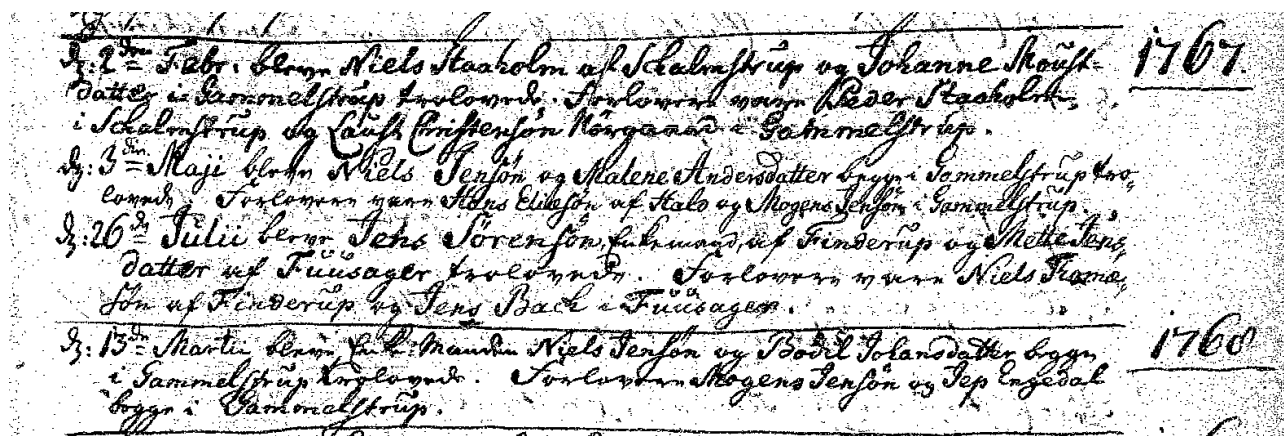 1767.
d: 2den Febr. bleve Niels Staaholm af Schalmstrup og Johanne Moust-
datter i Gammelstrup trolovede. Forlovere vare Peder Staaholm
i Schalmstrup og Laust Christensøn Nørgaard i Gammelstrup.
d: 3die Maji bleve Niels Jensøn og Malene Andersdatter begge i Gammelstrup tro-
lovede. Forlovere vare Hans af og Mogens Jensøn i Gammelstrup.
d: 26de Julii bleve Jens Sørensøn, Enkemand, af Finderup og Mette Jens-
datter af Fuusager trolovede. Forlovere vare Niels
søn af Finderup og Jens Back i Fuusager.
1768
d: 13de Martii bleve Enke-Manden Niels Jensøn og Bodil Johansdatter begge
i Gammelstrup trolovede. Forlovere Mogens Jensøn og Jep Engedal
begge i Gammelstrup.